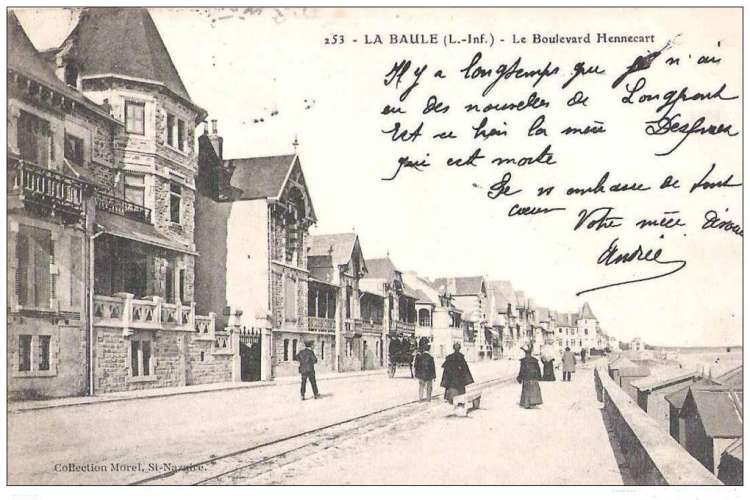 253 - LA BAULE (L.-Inf.) - Le Boulevard Hennecart
Il y a longtemps que je n'ai
eu des nouvelles de Longpont
Est ce bien la mère
qui est morte
Je vs embrasse de tout
cœur
Votre nièce
Andrée
Collection Morel, St-Nazaire.